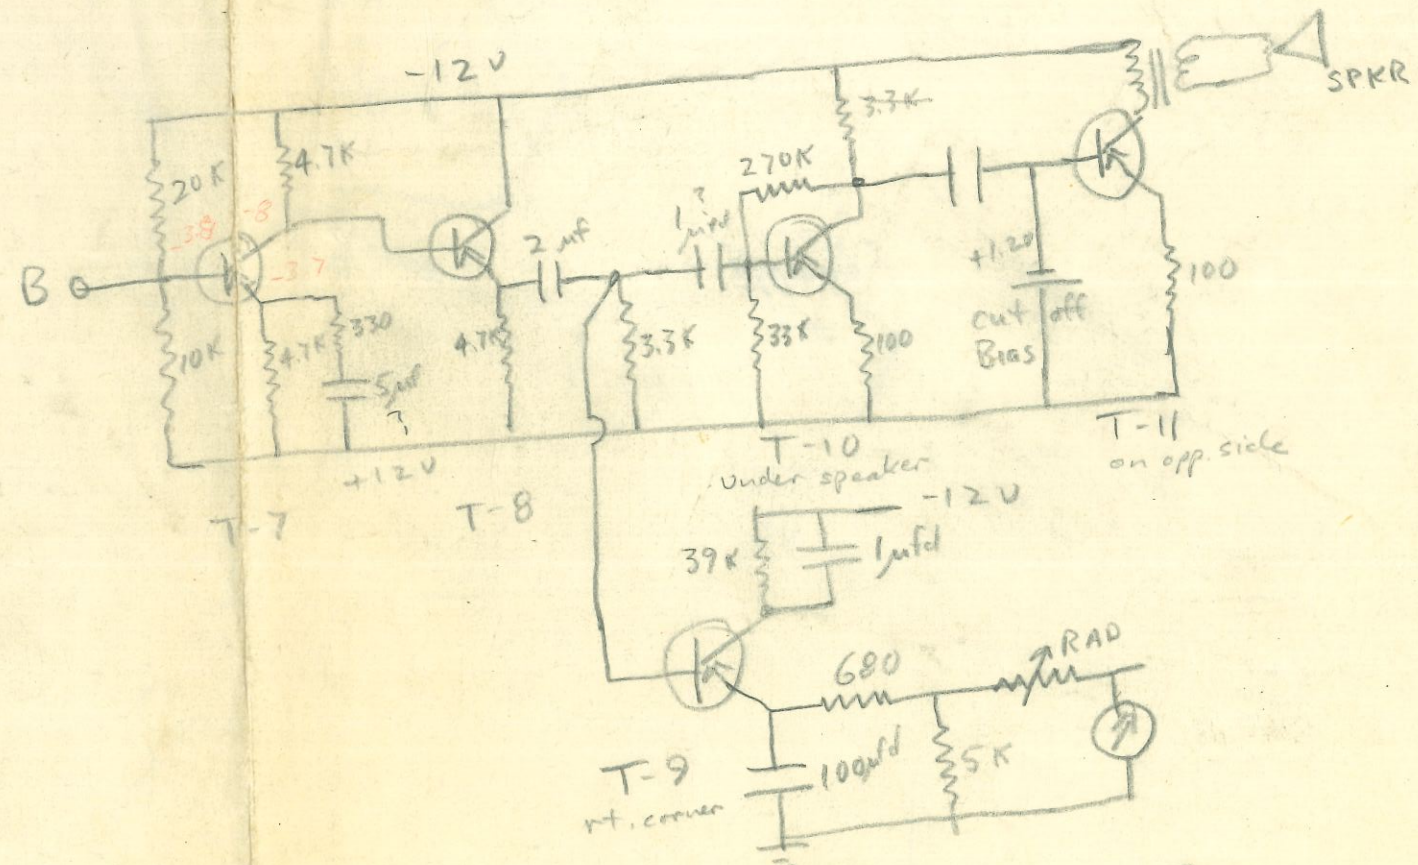 -12V
SPKR
3.3K
20K
4.7K
270K
-8
-3.8
1 µfd
?
2 µf
B
-3.7
+1.2V
100
330
10K
4.7K
4.7K
3.3K
33K
100
cut off
Bias
5µf
?
+12V
T-7
T-8
T-10
under speaker
T-11
on opp. side
-12V
39K
1µfd
680
RAD
T-9
rt. corner
100µfd
5K